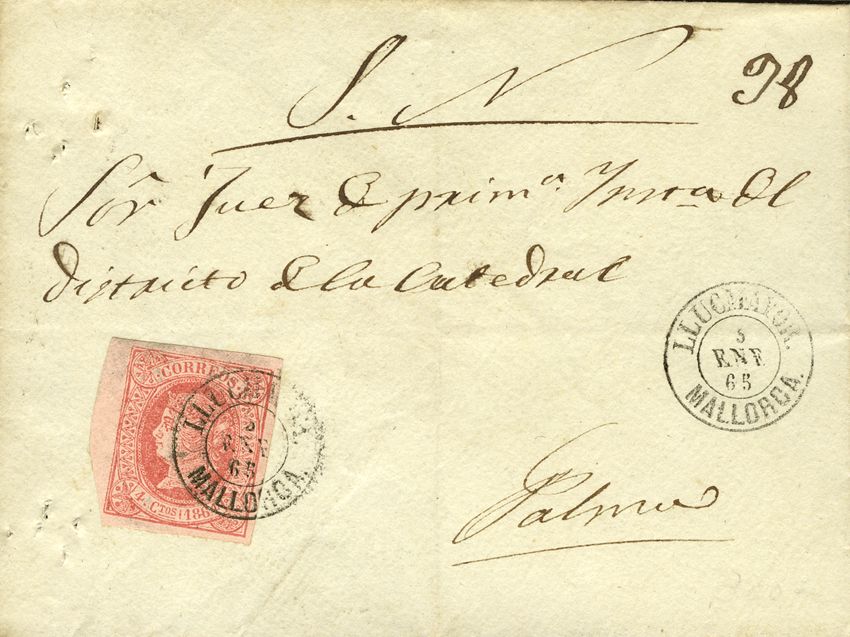 S. N 98
Sôr Juez de prim.ª Insª. del
distrito de la Catedral
LLUCMAYOR.
5
ENE
65
MALLORCA.
CORREOS.
4. Ctos 186
LLUC
5
ENE
65
MALLORCA.
Palma